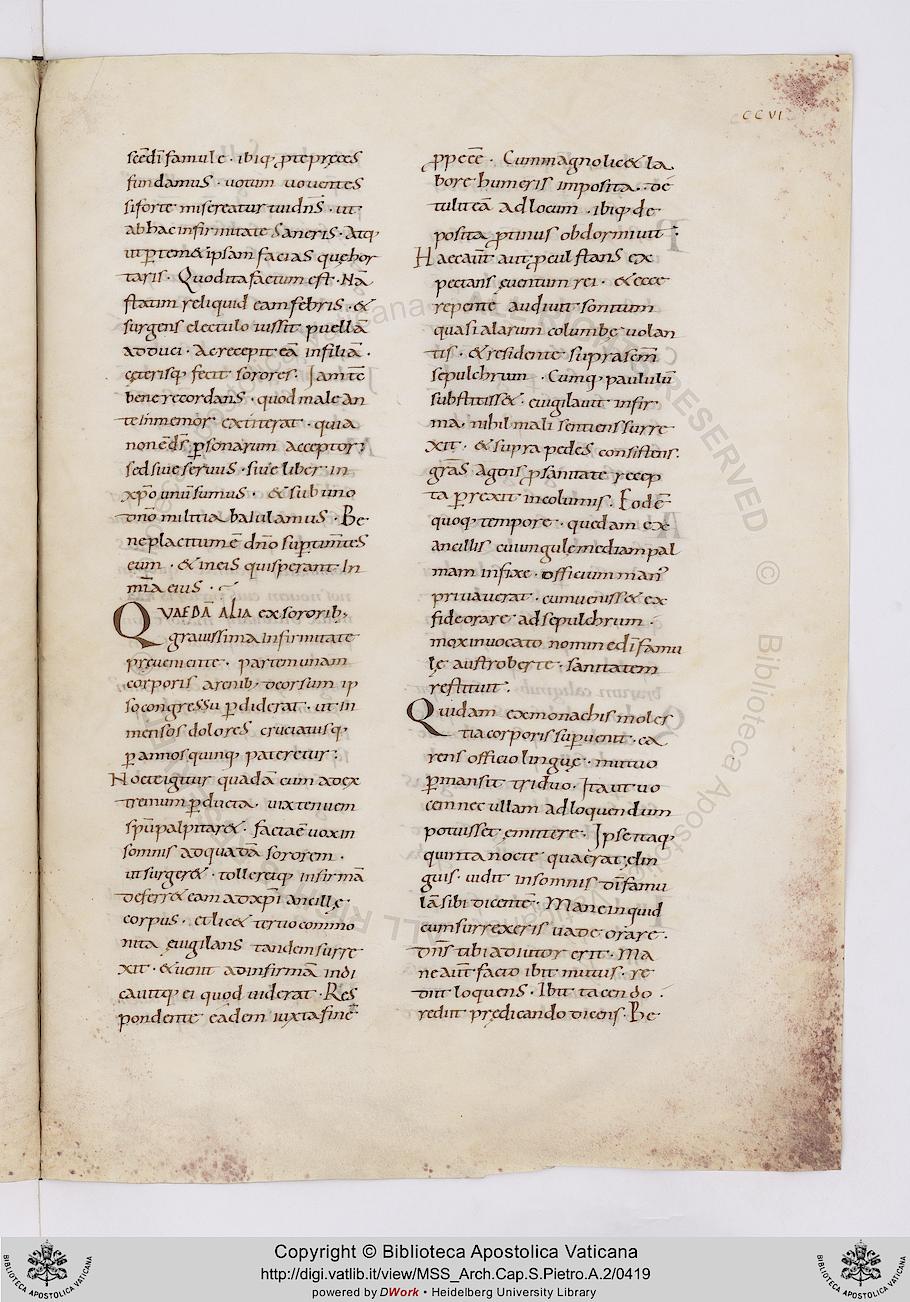 CCVI
scē dī famule · ibiq; p̄ te preces
fundamus · uotum uouentes
si forte misereatur uui dn̄s · ut
ab hac infirmitate saneris · Atq;
ut p̄ tem & ipsam facias quę hor
taris · Quod ita factum est · Nā
statim reliquid eam febris · &
surgens e lectulo iussit puellā
adduci · Ac recepit eā in filiā ·
cęterisq; fecit sorores · Iam te
bene recordans · quod male an
te inmemor extiterat · quia
non ē ds̄ p̄sonarum acceptor ;
sed siue seruus · siue liber · in
xp̄o unū sumus · & sub uno
dn̄o militia baiulamus · Be
ne placitum ē dn̄o sup̄ timtes
eum · & in eis qui sperant · In
mīa eius ·
QVAEDĀ ALIA ex sororib;
grauissima infirmitate
pręueniente · partem unam
corporis a renib; deorsum ip
so congressu p̄diderat · ut in
mensos dolores cruciatusq;
p̄ annos quinq; pateretur ;
Nocte igitur quadā cum ad ex
tremum p̄ducta · uix tenuem
sp̄m palpitar& · facta ē uox in
somnis ad quadā sororem ·
ut surger& · tollereq; infirmā
deferr& eam ad xp̄i ancillę
corpus · et lic& tertio commo
nita euigilans tandem surre
xit · & uenit ad infirmā indi
cauitq; ei quod uiderat · Res
pondente eadem iuxta sine
p̄pe eē̄ · Cum magno lic& la
bore humeris imposita · de
tulit eā ad locum · ibiq; de
posita p̄tinus obdormiuit ;
Haec aūt aut p̄cul stans ex
pectans euentum rei · & ecce
repente audiuit sonitum
quasi alarum columbę uolan
tis · & residente supra scm̄
sepulchrum · Cumq; paululū
substitiss& · euigilauit infir
ma · nihil mali sentiens surre
xit · & supra pedes consistens ·
gras̄ agens p̄ sanitate recep
ta p̄rexit incolumis · Eodē
quoq; tempore · quędam ex
ancillis cui ungulę mediam pal
mam infixe · officium man'
priuauerat · cum uenisset ex
fide orare ad sepulchrum ·
mox inuocato nomine dī famu
lę austroberte · sanitatem
restituit ·
Quidam ex monachis moles
tia corporis sup̄uenit · ca
rens officio linguę · mutuo
p̄mansit triduo · Ita ut uo
cem nec ullam ad loquendum
potuisset emittere · Ipse itaq;
quinta nocte
guis · uidit in somnis dī famu
lā sibi dicente · Mane inquid
cum surrexeris uade orare ·
dn̄s tibi adiutor erit · Ma
ne aūt facto ibit mutus · re
diit loquens · Ibit tacendo ·
rediit predicando dicens · Be
Copyright © Biblioteca Apostolica Vaticana
http://digi.vatlib.it/view/MSS_Arch.Cap.S.Pietro.A.2/0419
powered by DWork • Heidelberg University Library